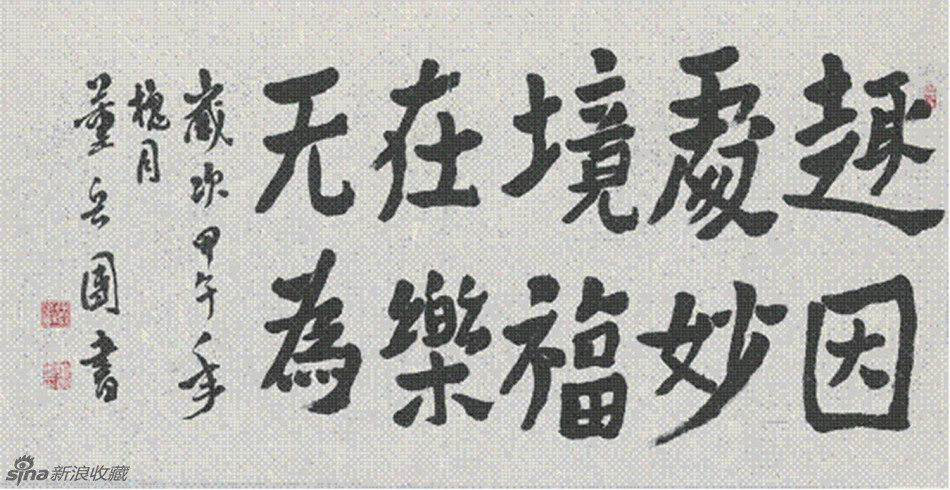 趣因
處妙
境福
在樂
无為
歲次甲午年
槐月
董兵團書
sina新浪收藏